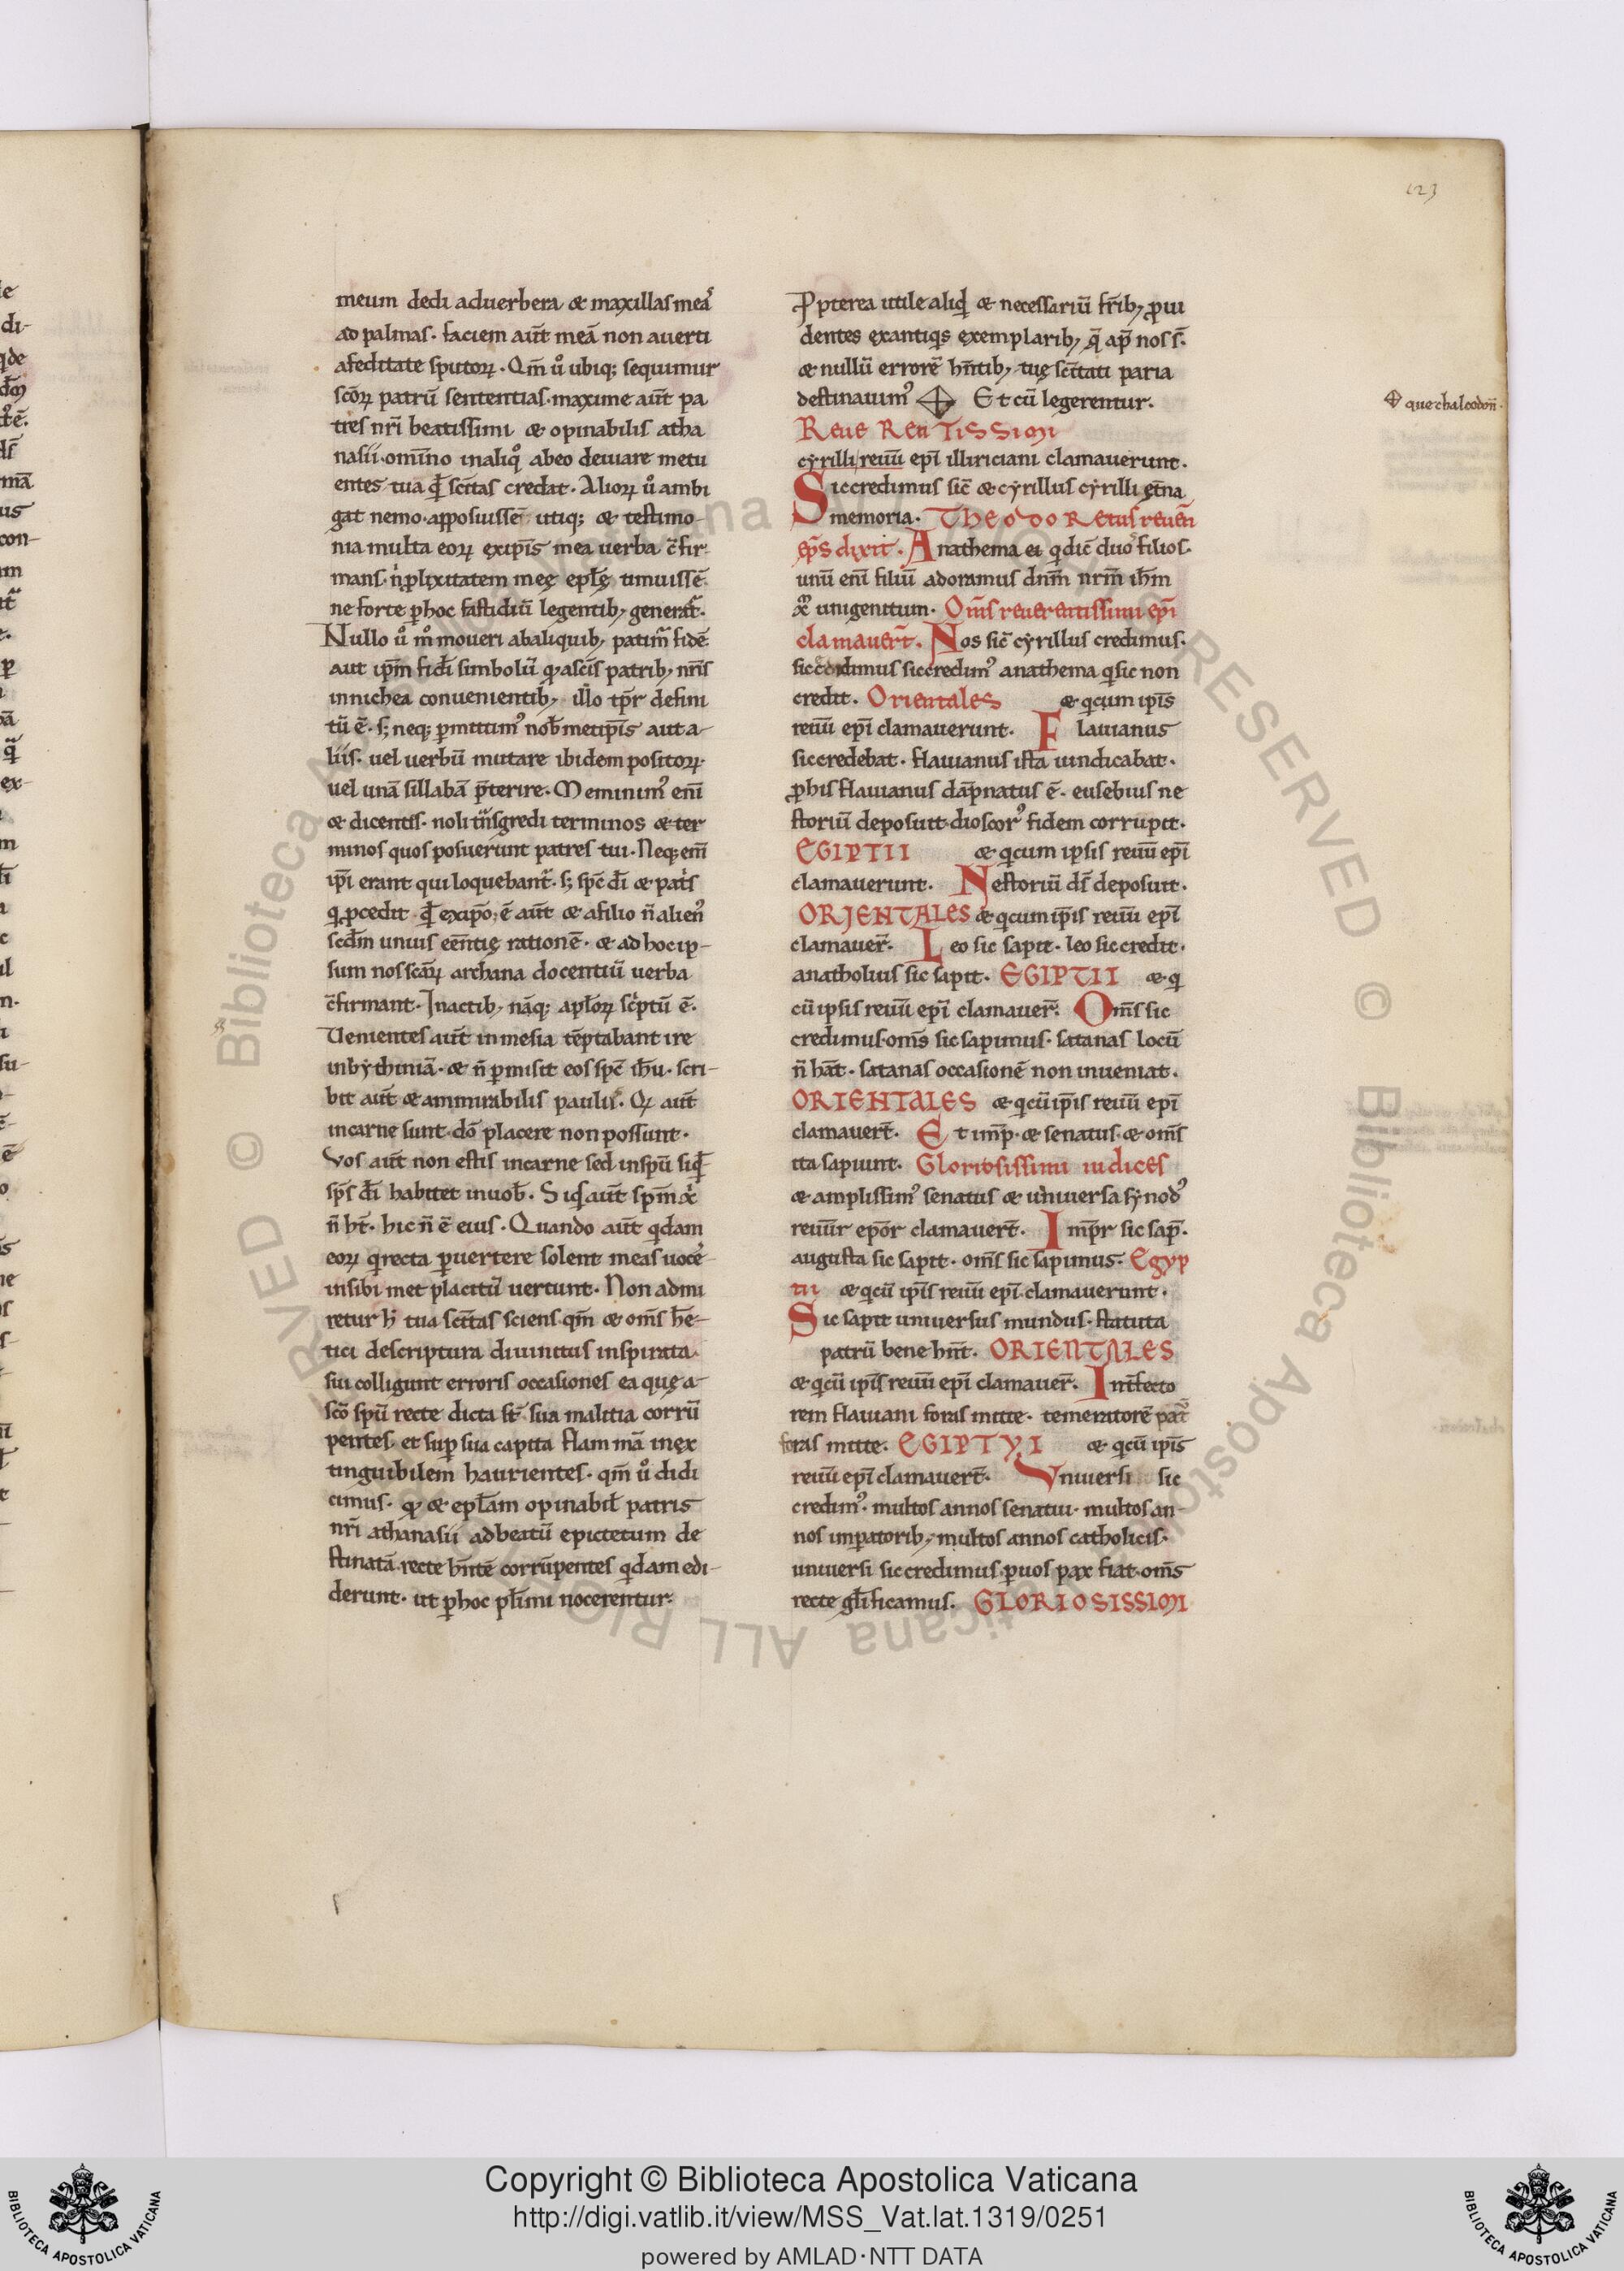 123
meum dedi ad uerbera & maxillas meaſ
ad palmas. faciem aut̄ meā non auerti
a feditate sputoꝝ. Qm̄ ů ubiq; sequimur
scōꝝ patrū sententias. maxime aut̄ pa
tres nr̄i beatissimi & opinabilis atha
nasii. omīno in aliq̊ ab eo deuiare metu
entes tua qd̄ sc̄itas credat. Alioꝝ ů ambi
gat nemo. apposuissē utiq; & testimo-
nia multa eoꝝ ex ip̄is mea uerba c̄fir
mans. n̄ plixitatem meę ep̄lę timuissē
ne forte p hoc fastidiū legentib; generar̄.
Nullo ů m̊ moueri ab aliquib; patim̄ fidē
aut ip̄m fid̄i simbolū qd̄ a sc̄is patrib; nr̄is
in nichea conuenientib; illo tp̄r defini
tū ē. s; neq; pmittim᾿ nob̄ met ip̄is aut a-
liis. uel uerbū mutare ibidem positoꝝ.
uel unā sillabā p̄terire. Meminim᾿ eni̅
& dicentis. noli tn̄sgredi terminos & ter
minos quos posuerunt patres tui. Neq; eni̅
ip̄i erant qui loquebant᾿. s; sp̄c d̄i & pat̄s
q pcedit qd̄ ex ip̄o; ē aut̄ & a filio n̄ alien᾿
scd̄m unius eēntię rationē. & ad hoc ip-
sum nos sc̄aꝝ archana docentiū uerba
c̄firmant. In actib; nāq; apl̄oꝝ sc̄ptū ē.
Uenientes aut̄ in mesia tēptabant ire
in bythiniā. & n̄ pmisit eos sp̄c ih̄u. scri-
bit aut̄ & ammirabilis paulus. Qꝝ aut̄
in carne sunt dō placere non possunt.
Vos aut̄ non estis in carne sed in spū siqd̄
sp̄s d̄i habitet in uob̄. Siqs aut̄ spm̄ xp̄i
n̄ ht̄. hic n̄ ē eius. Quando aut̄ qdam
eoꝝ q recta puertere solent meas uocē
in sibi met placitū uertunt. Non admi
retur h̄ tua sc̄itas sciens qm̄ & om̄s he̅-
tici de scriptura diuinitus inspirata.
sui colligunt erroris occasiones ea quę a-
scō spū recte dicta st̄ sua malitia corrū
pentes. et sup sua capita flammā inex
tinguibilem haurientes. qm̄ ů didi
cimus. qd̄ & epl̄am opinabil̄ patris
nr̄i athanasii ad beatū epictetum de
stinatā. recte hn̄tē corrūpentes qdam edi-
derunt. ut p hoc pl̄imi nocerentur.
Ppterea utile aliqd̄ & necessariū fr̄ib; p̱ui
dentes ex antiqis exemplarib; q̄ ap̄ nos s̄.
& nullū errorē hn̄tib; tuę sc̄itati paria
destinauim᾿ Et cū legerentur.
que chalcedon̄.
ReueRenTissimi
cyrilli reuu̅ epi̅ illiriciani clamauerunt.
Sic credimus sic̄ & cyrillus cyrilli ęt̄na
memoria. TheodoRetus reuen̄
ep̄s dixit. Anathema ei q dic̄ duo filios.
unū eni̅ filiū adoramus dnm̄ nrm̄ ih̄m
xp̄ unigenitum. Om̄s reuerentissimi epi̅
clamauer̄t. Nos sic̄ cyrillus credimus.
sic credimus sic credim᾿ anathema q sic non
credit. Orientales & q cum ip̄is
reuu̅ epi̅ clamauerunt. Flauianus
sic credebat. flauianus ista uindicabat.
p his flauianus dāpnatus ē. eusebius ne
storiū deposuit. dioscor᾿ fidem corrupit.
EGIPTII & q cum ipsis reuu̅ epi̅
clamauerunt. Nestoriū d̄s deposuit.
ORIENTALES & q cum ip̄is reuu̅ epi̅
clamauer̄. Leo sic sapit. leo sic credit.
anatholius sic sapit. EGIPTII & q
cū ipsis reuu̅ epi̅ clamauer̄. Om̄s sic
credimus. om̄s sic sapimus. satanas locū
n̄ hāt. satanas occasionē non inueniat.
ORIENTALES & q cū ip̄is reuu̅ epi̅
clamauer̄t. Et imp̄. & senatus. & om̄s
ita sapiunt. Gloriosissimi iudices
& amplissim᾿ senatus & uniuersa synod᾿
reuu̅r epōr clamauer̄t. Imp̄r sic sap̄.
augusta sic sapit. om̄s sic sapimus. Egyp
tii & q cū ip̄is reuu̅ epi̅ clamauerunt.
Sic sapit uniuersus mundus. statuta
patrū bene hn̄t. ORIENTALES
& q cū ip̄is reuu̅ epi̅ clamauer̄. Int̄fecto
rem flauiani foras mitte. temeratorē pat᾿
foras mitte. EGIPTYI & q cū ip̄is
reuu̅ epi̅ clamauer̄t. Vniuersi sic
credim᾿. multos annos senatui. multos an-
nos impatorib; multos annos catholicis.
uniuersi sic credimus. p uos pax fiat. om̄s
recte gl̄ificamus. GLORIOSISSIMI
Copyright © Biblioteca Apostolica Vaticana
http://digi.vatlib.it/view/MSS_Vat.lat.1319/0251
powered by AMLAD·NTT DATA